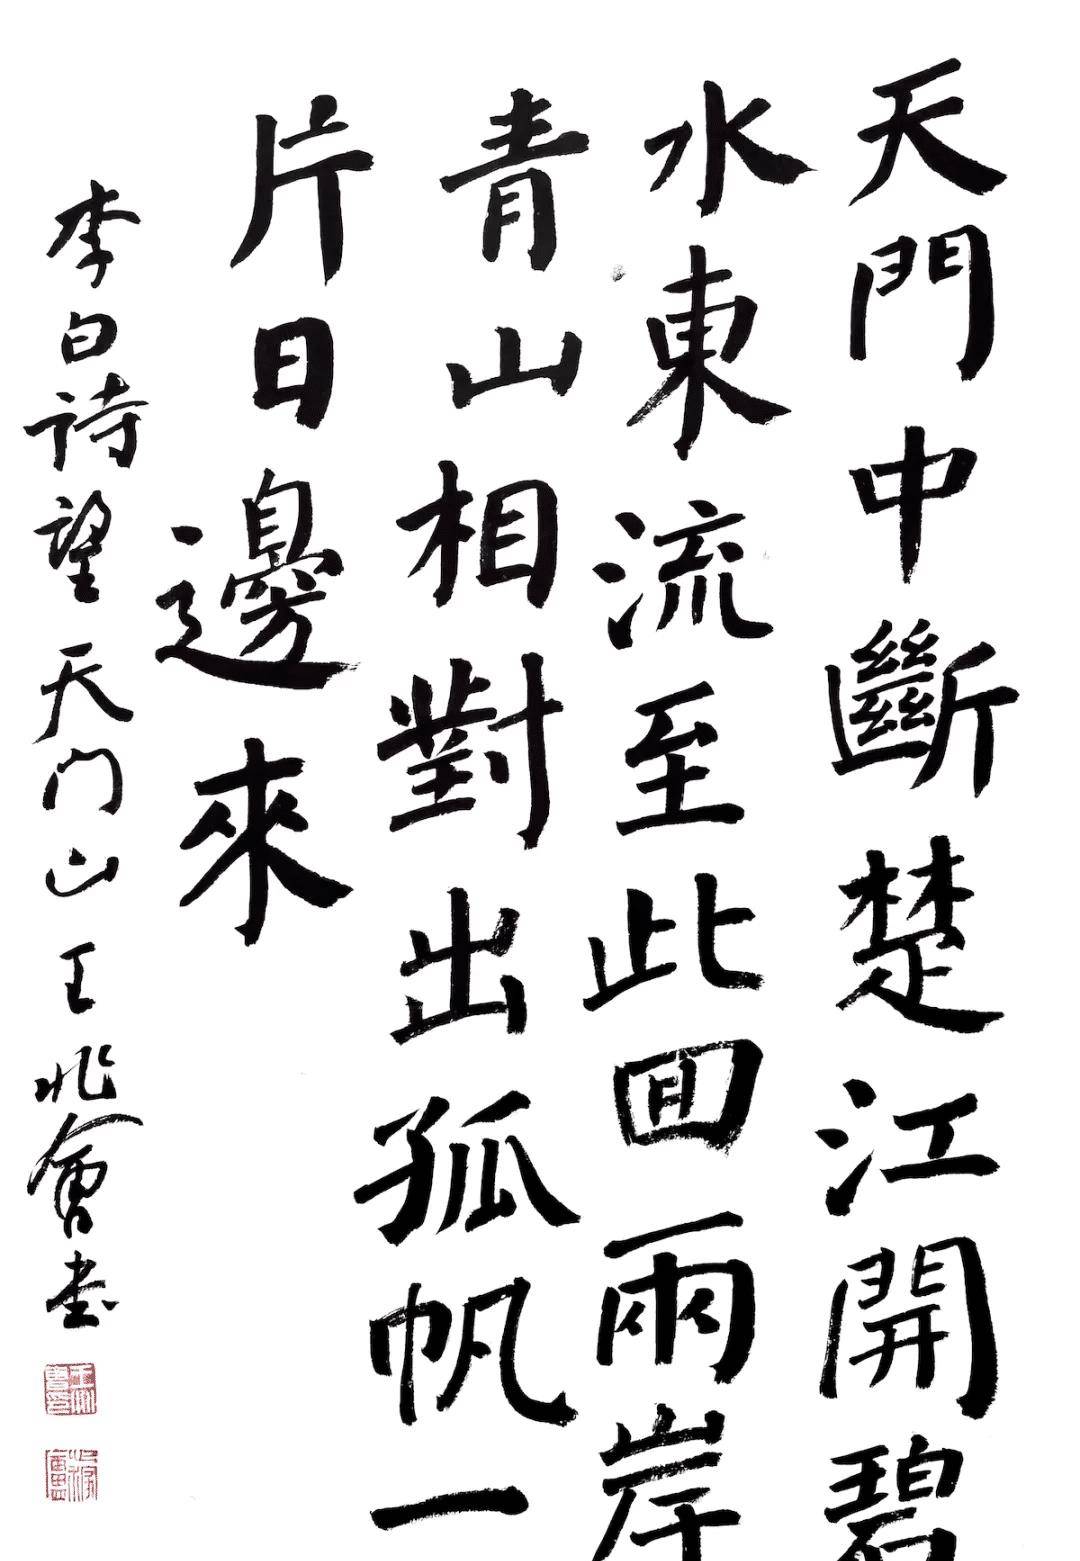 天門中斷楚江開碧
水東流至此回兩岸
青山相對出孤帆一
片日邊來
李白诗望天门山王兆會书